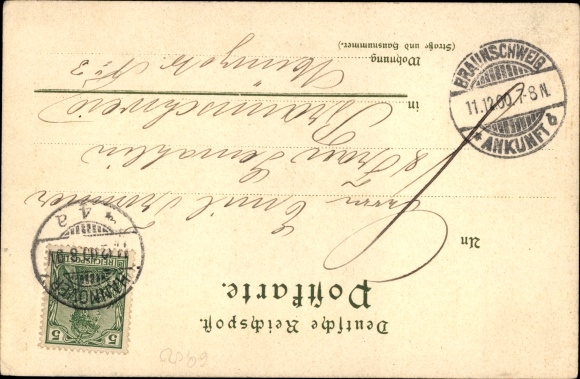 Deutsche Reichspost.
Postkarte.
An
Herrn Emil
& Frau Gemahlin
in Braunschweig
Wohnung
(Straße und Hausnummer.)
No 3
BRAUNSCHWEIG
11.12.00.7-8N.
* ANKUNFT b
HANNOVER
* 4 a
REICHSPOST
5 5